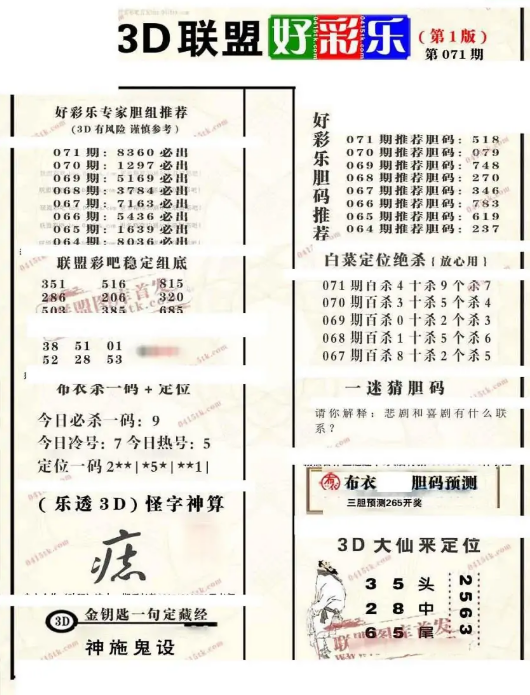 3D联盟 好彩乐 (第1版)
第071期
好彩乐专家胆组推荐
(3D有风险 谨慎参考)
071期: 8360必出
070期: 1297必出
069期: 5169必出
068期: 3784必出
067期: 7163必出
066期: 5436必出
065期: 1639必出
064期: 8036必出
联盟彩吧稳定组底
351 516 815
286 206 320
503 385 685
38 51 01
52 28 53
布衣杀一码+定位
今日必杀一码: 9
今日冷号: 7 今日热号: 5
定位一码 2**|*5*|**1|
(乐透3D)怪字神算
3D 金钥匙一句定藏经
神施鬼设
好彩乐胆码推荐
071期推荐胆码: 518
070期推荐胆码: 079
069期推荐胆码: 748
068期推荐胆码: 270
067期推荐胆码: 346
066期推荐胆码: 783
065期推荐胆码: 619
064期推荐胆码: 237
白菜定位绝杀{放心用}
071期百杀4十杀9个杀7
070期百杀3十杀5个杀4
069期百杀0十杀2个杀3
068期百杀1十杀5个杀6
067期百杀8十杀2个杀5
一迷猜胆码
请你解释: 悲剧和喜剧有什么联
系?
布衣 胆码预测
三胆预测265开奖
3D大仙来定位
3 5 头
2 8 中
6 5 尾
2563